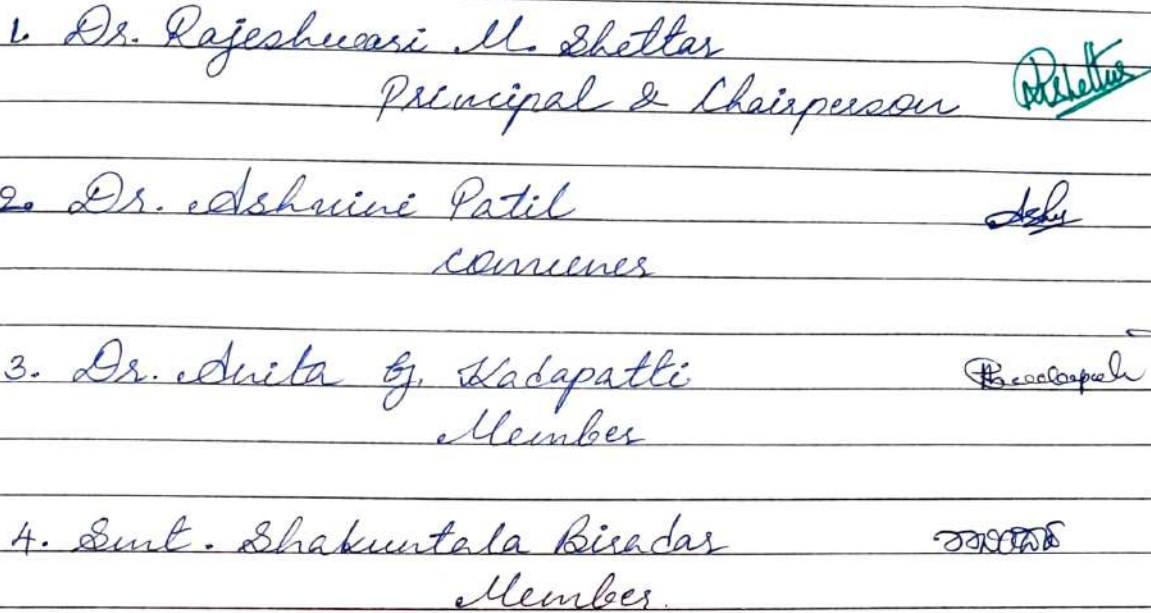 1. Dr. Rajeshwari M. Shettar RShettar
Principal & Chairperson
2. Dr. Ashwini Patil Ashu
convener
3. Dr. Anita G. Kadapatti
Member
4. Smt. Shakuntala Biradar
Member.